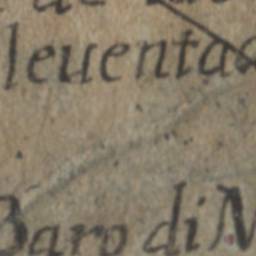 leuenta
Baro di M